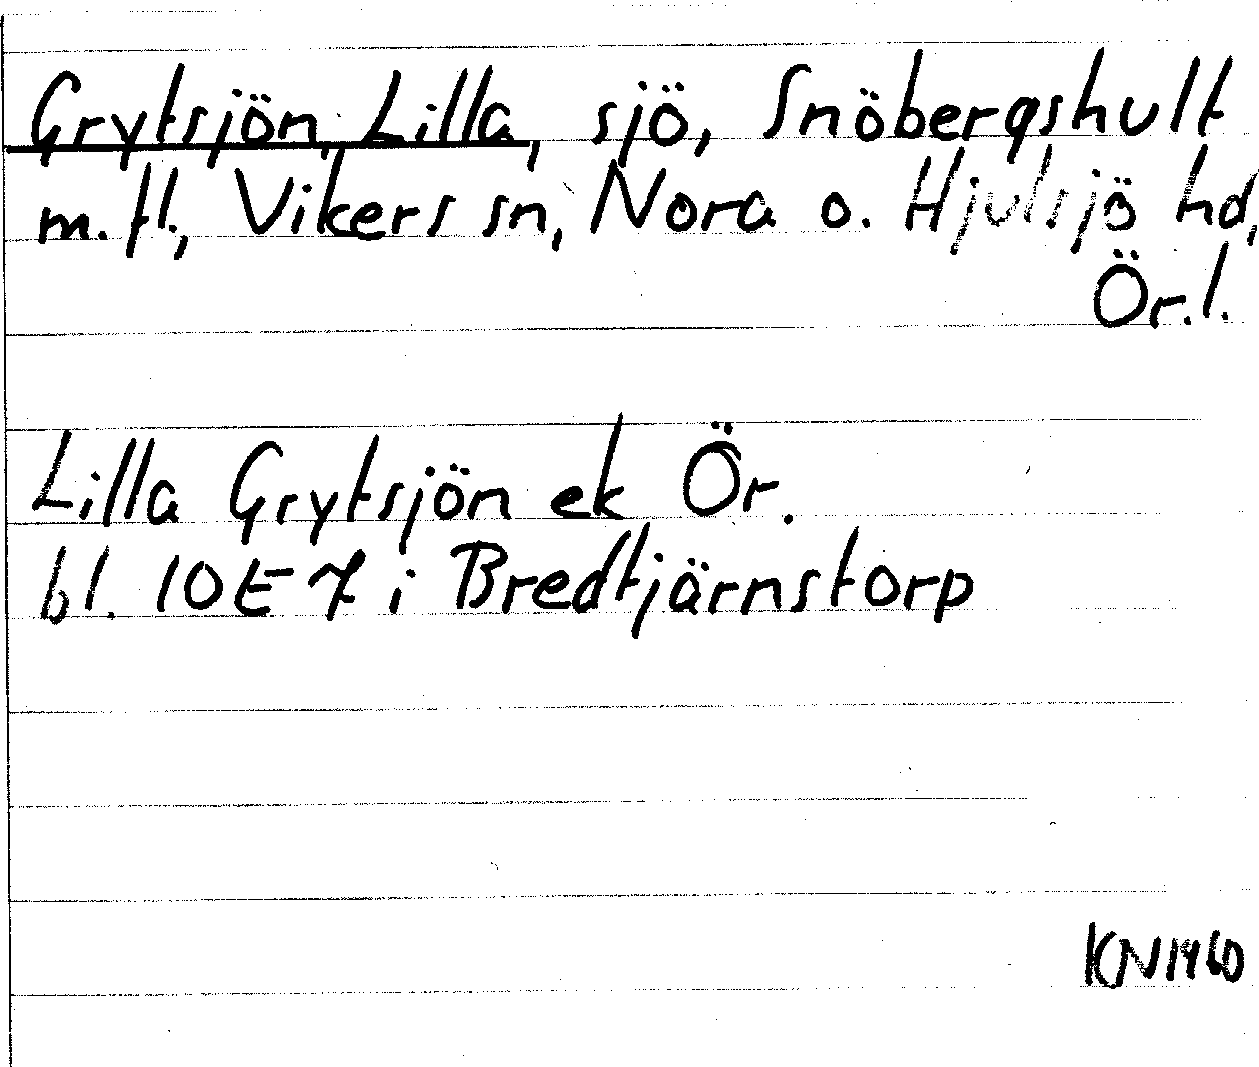 Grytsjön, Lilla, sjö, Snöbergshult
m. fl., Vikers sn, Nora o. Hjulsjö hd,
Ör. l.
Lilla Grytsjön ek Ör.
bl. 10 E 7 i Bredtjärnstorp
KN 1960